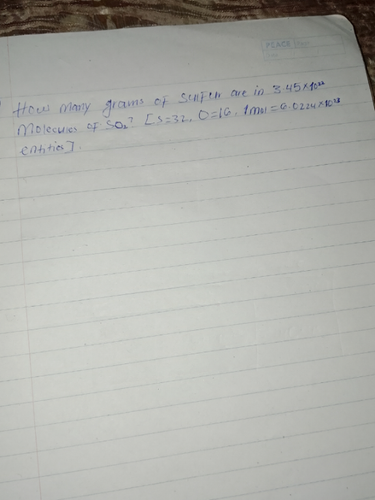 How many grams of Sulfur are in 3.45×10²³
Molecules of SO₂? [S=32, O=16, 1mol=6.0224×10²³
entities].